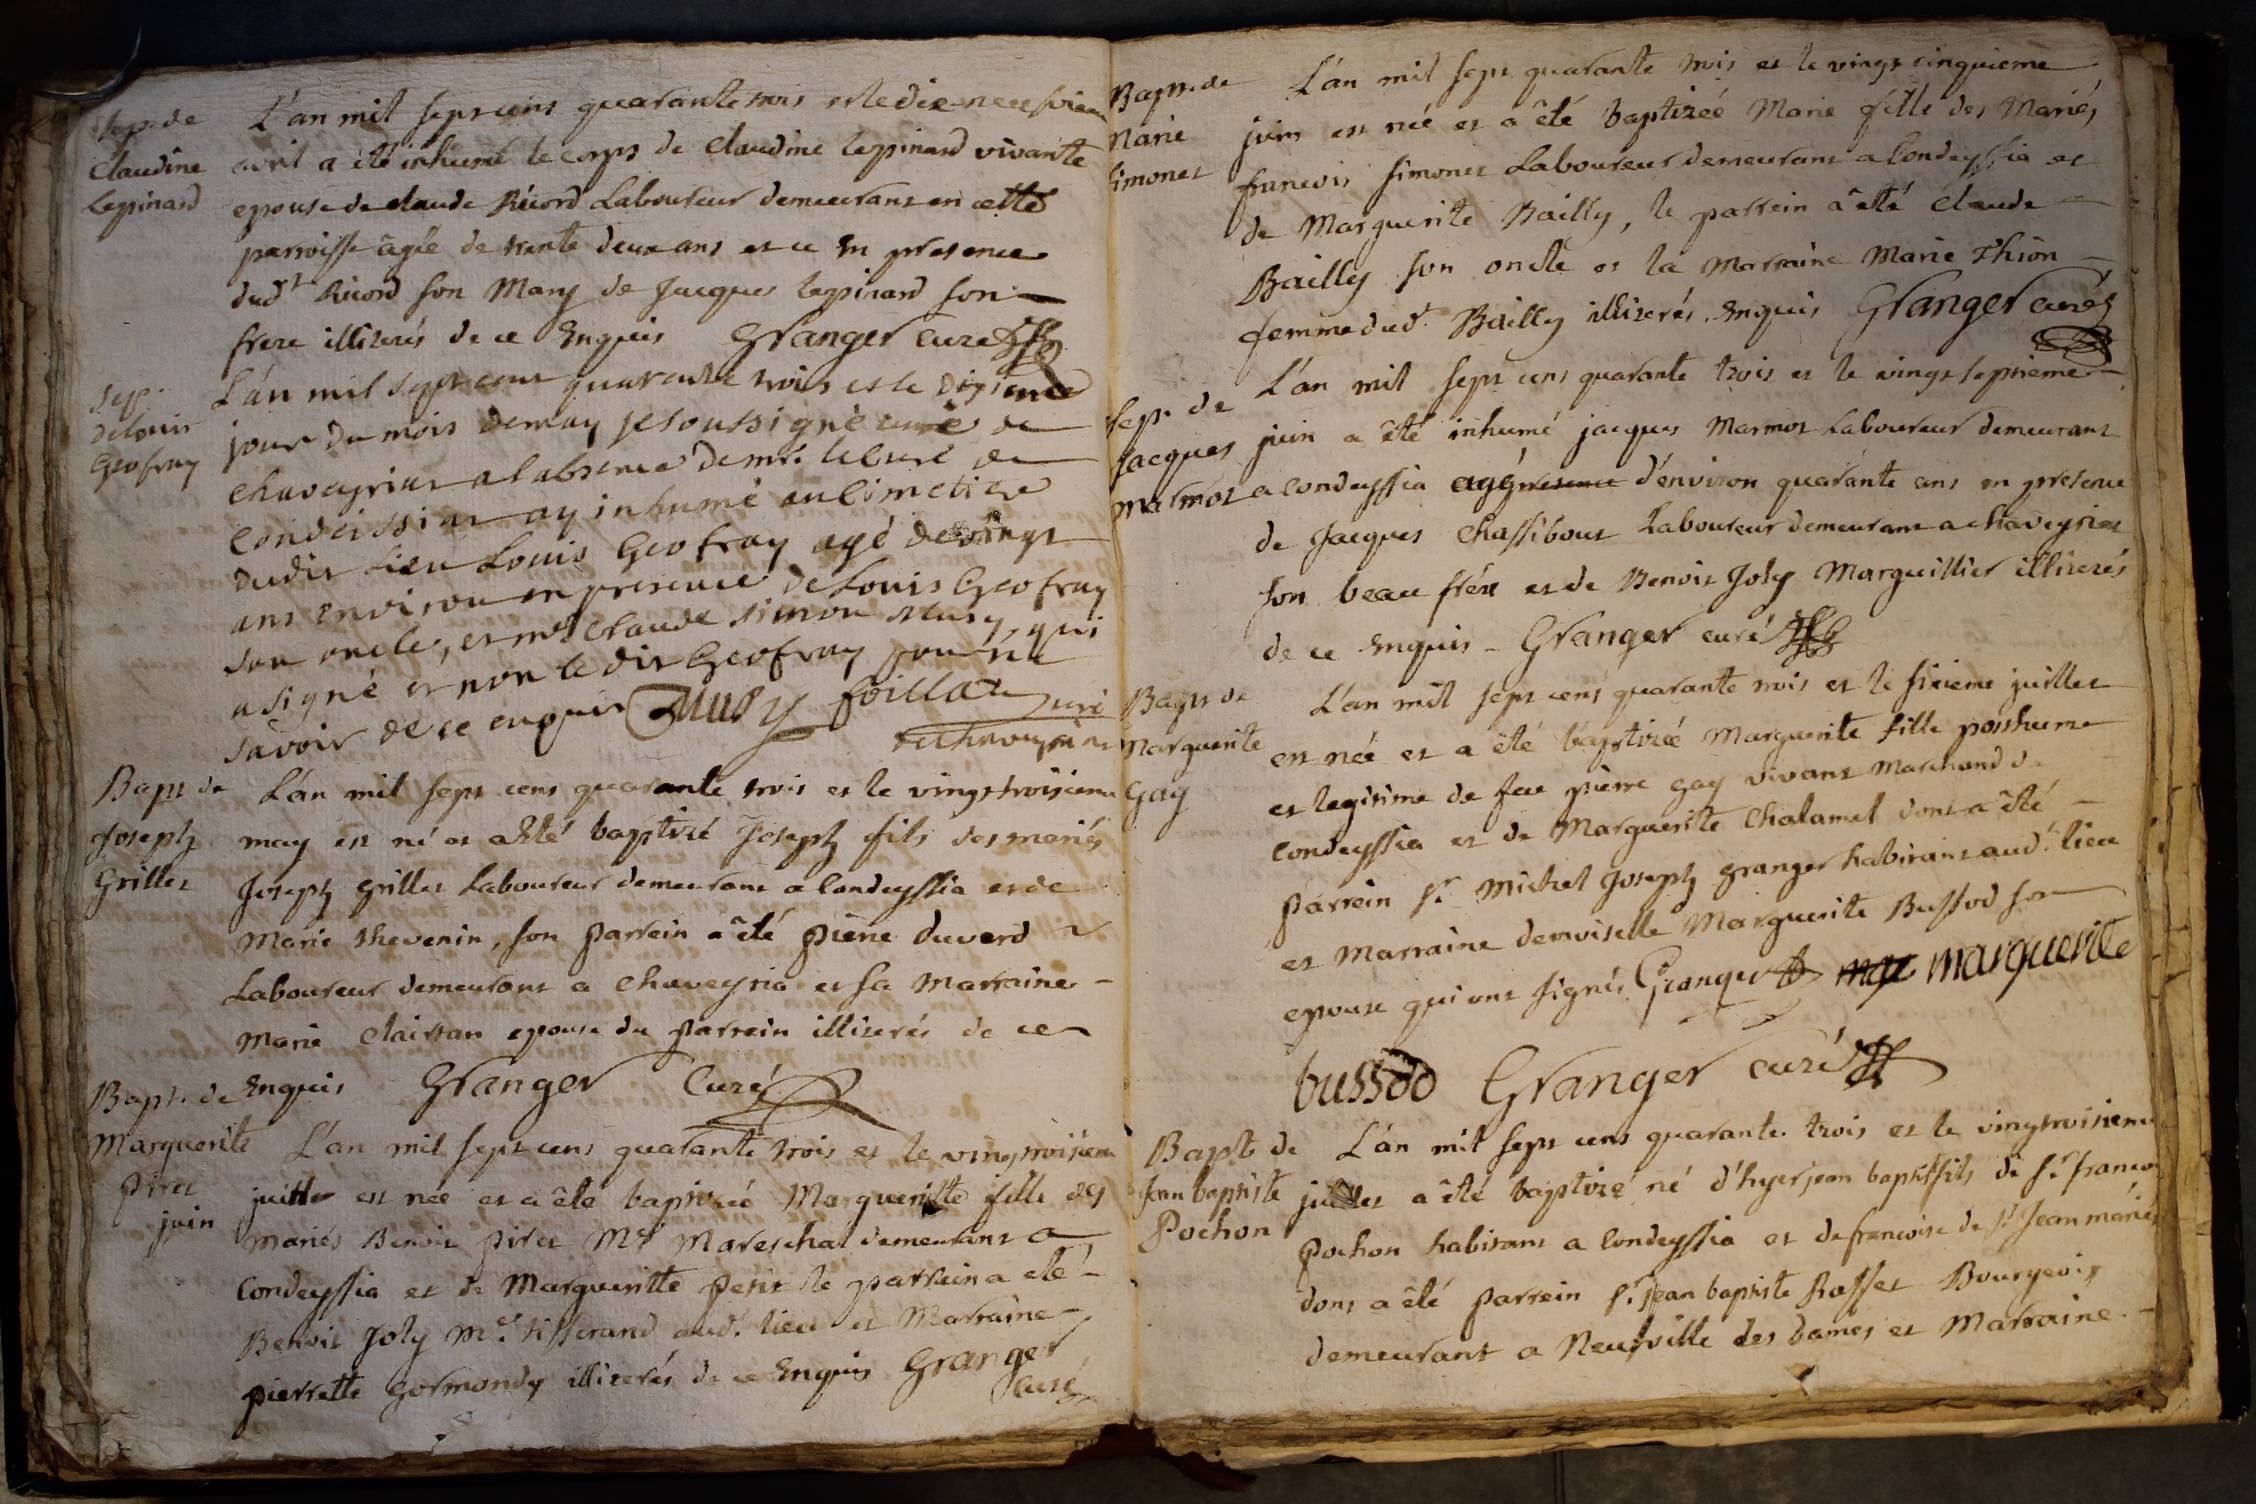 Sep. de
Claudine
Lepinard
L'an mil sept cens quarante trois et le dix-neufvieme
avril a été inhumé le corps de Claudine Lepinard vivante
epouse de claude Ricord Laboureur demeurant en cette
parroisse âgée de trente deux ans et ce En presence
dud.t Ricord son Mary de Jacques Lepinard son
frere illiterés de ce Enquis Granger Curé
Sep.
de Louis
Geofray
L'an mil sept cent quarante trois et le dixieme
jour du mois de may je soussigné curé de
chaveyriat a l'absence de mr. le Curé de
Condeissiat ay inhumé au Cimetiere
dudit Lieu Louis Geofray agé de vingt
ans environ en presence de Louis Geofray
son oncle, et mre Claude simon Musy, qui
a signé et non le dit Geofray pour ne
savoir de ce enquis Musy foillat curé
de chaveyria
Bapt de
Joseph
Grillet
L'an mil sept cens quarante trois et le vingt troisieme
may est né et a été baptizé Joseph fils des mariés
Joseph grillet Laboureur demeurant a Condeyssia et de
Marie thevenin, son parrein a été pierre duverd
Laboureur demeurant a Chaveyria et sa Marraine
Marie Clairtan epouse du parrein illiterés de ce
Enquis Granger Curé
Bapt. de
Marguerite
Piret
juin
L'an mil sept cens quarante trois et le vingt troisieme
juillet est née et a été baptizeé Margueritte fille des
mariés Benoit piret Mre Mareschal demeurant a
Condeyssia et de Margueritte petit le parrein a eté
Benoit Joly Me. tisserand aud. lieu et Marraine
pierrette Gormondy illiterés de ce Enquis Granger
Curé
Bapt. de
Marie
Simonet
L'an mil sept quarante trois et le vingt cinquieme
juin est née et a êté baptizeé Marie fille des Mariés
francois Simonet Laboureur demeurant a Condeyssia et
de Marguerite Bailly, le parrein a êté Claude
Bailly son oncle et la Marraine Marie Thion
femme dud.t Bailly illiterés Enquis Granger curé
Sep. de
Jacques
Marmot
L'an mil sept cens quarante trois et le vingt septieme
juin a êté inhumé jacques Marmot Laboureur demeurant
a Condeyssia agé d'environ quarante ans en presence
de Jacques Chassibout Laboureur demeurant a chaveyriat
son beau frére et de Benoit Joly Marguillier illiterés
de ce Enquis - Granger curé
Bapt de
Marguerite
Gay
L'an mil sept cens quarante trois et le sixieme juillet
est née et a êté baptizeé Marguerite fille posthume
et legitime de feu pierre gay vivant Marchand de
Condeyssia et de Marguerite Chalamel dont a êté
parrein Sr. Michel Joseph granger habitant aud.t lieu
et Marraine demoiselle Marguerite Bussod son
epouse qui ont signés Granger mar marguerite
bussdo Granger curé
Bapt de
Jean baptiste
Pochon
L'an mil sept cens quarante trois et le vingt troisieme
juillet a êté baptizé né d'hyer jean baptiste fils de Sr. francois
pochon habitant a Condeyssia et de francoise de St Jean mariés
dont a êté parrein Sr. Jean baptiste Rosset Bourgeois
demeurant a Neufville les dames et Marraine.